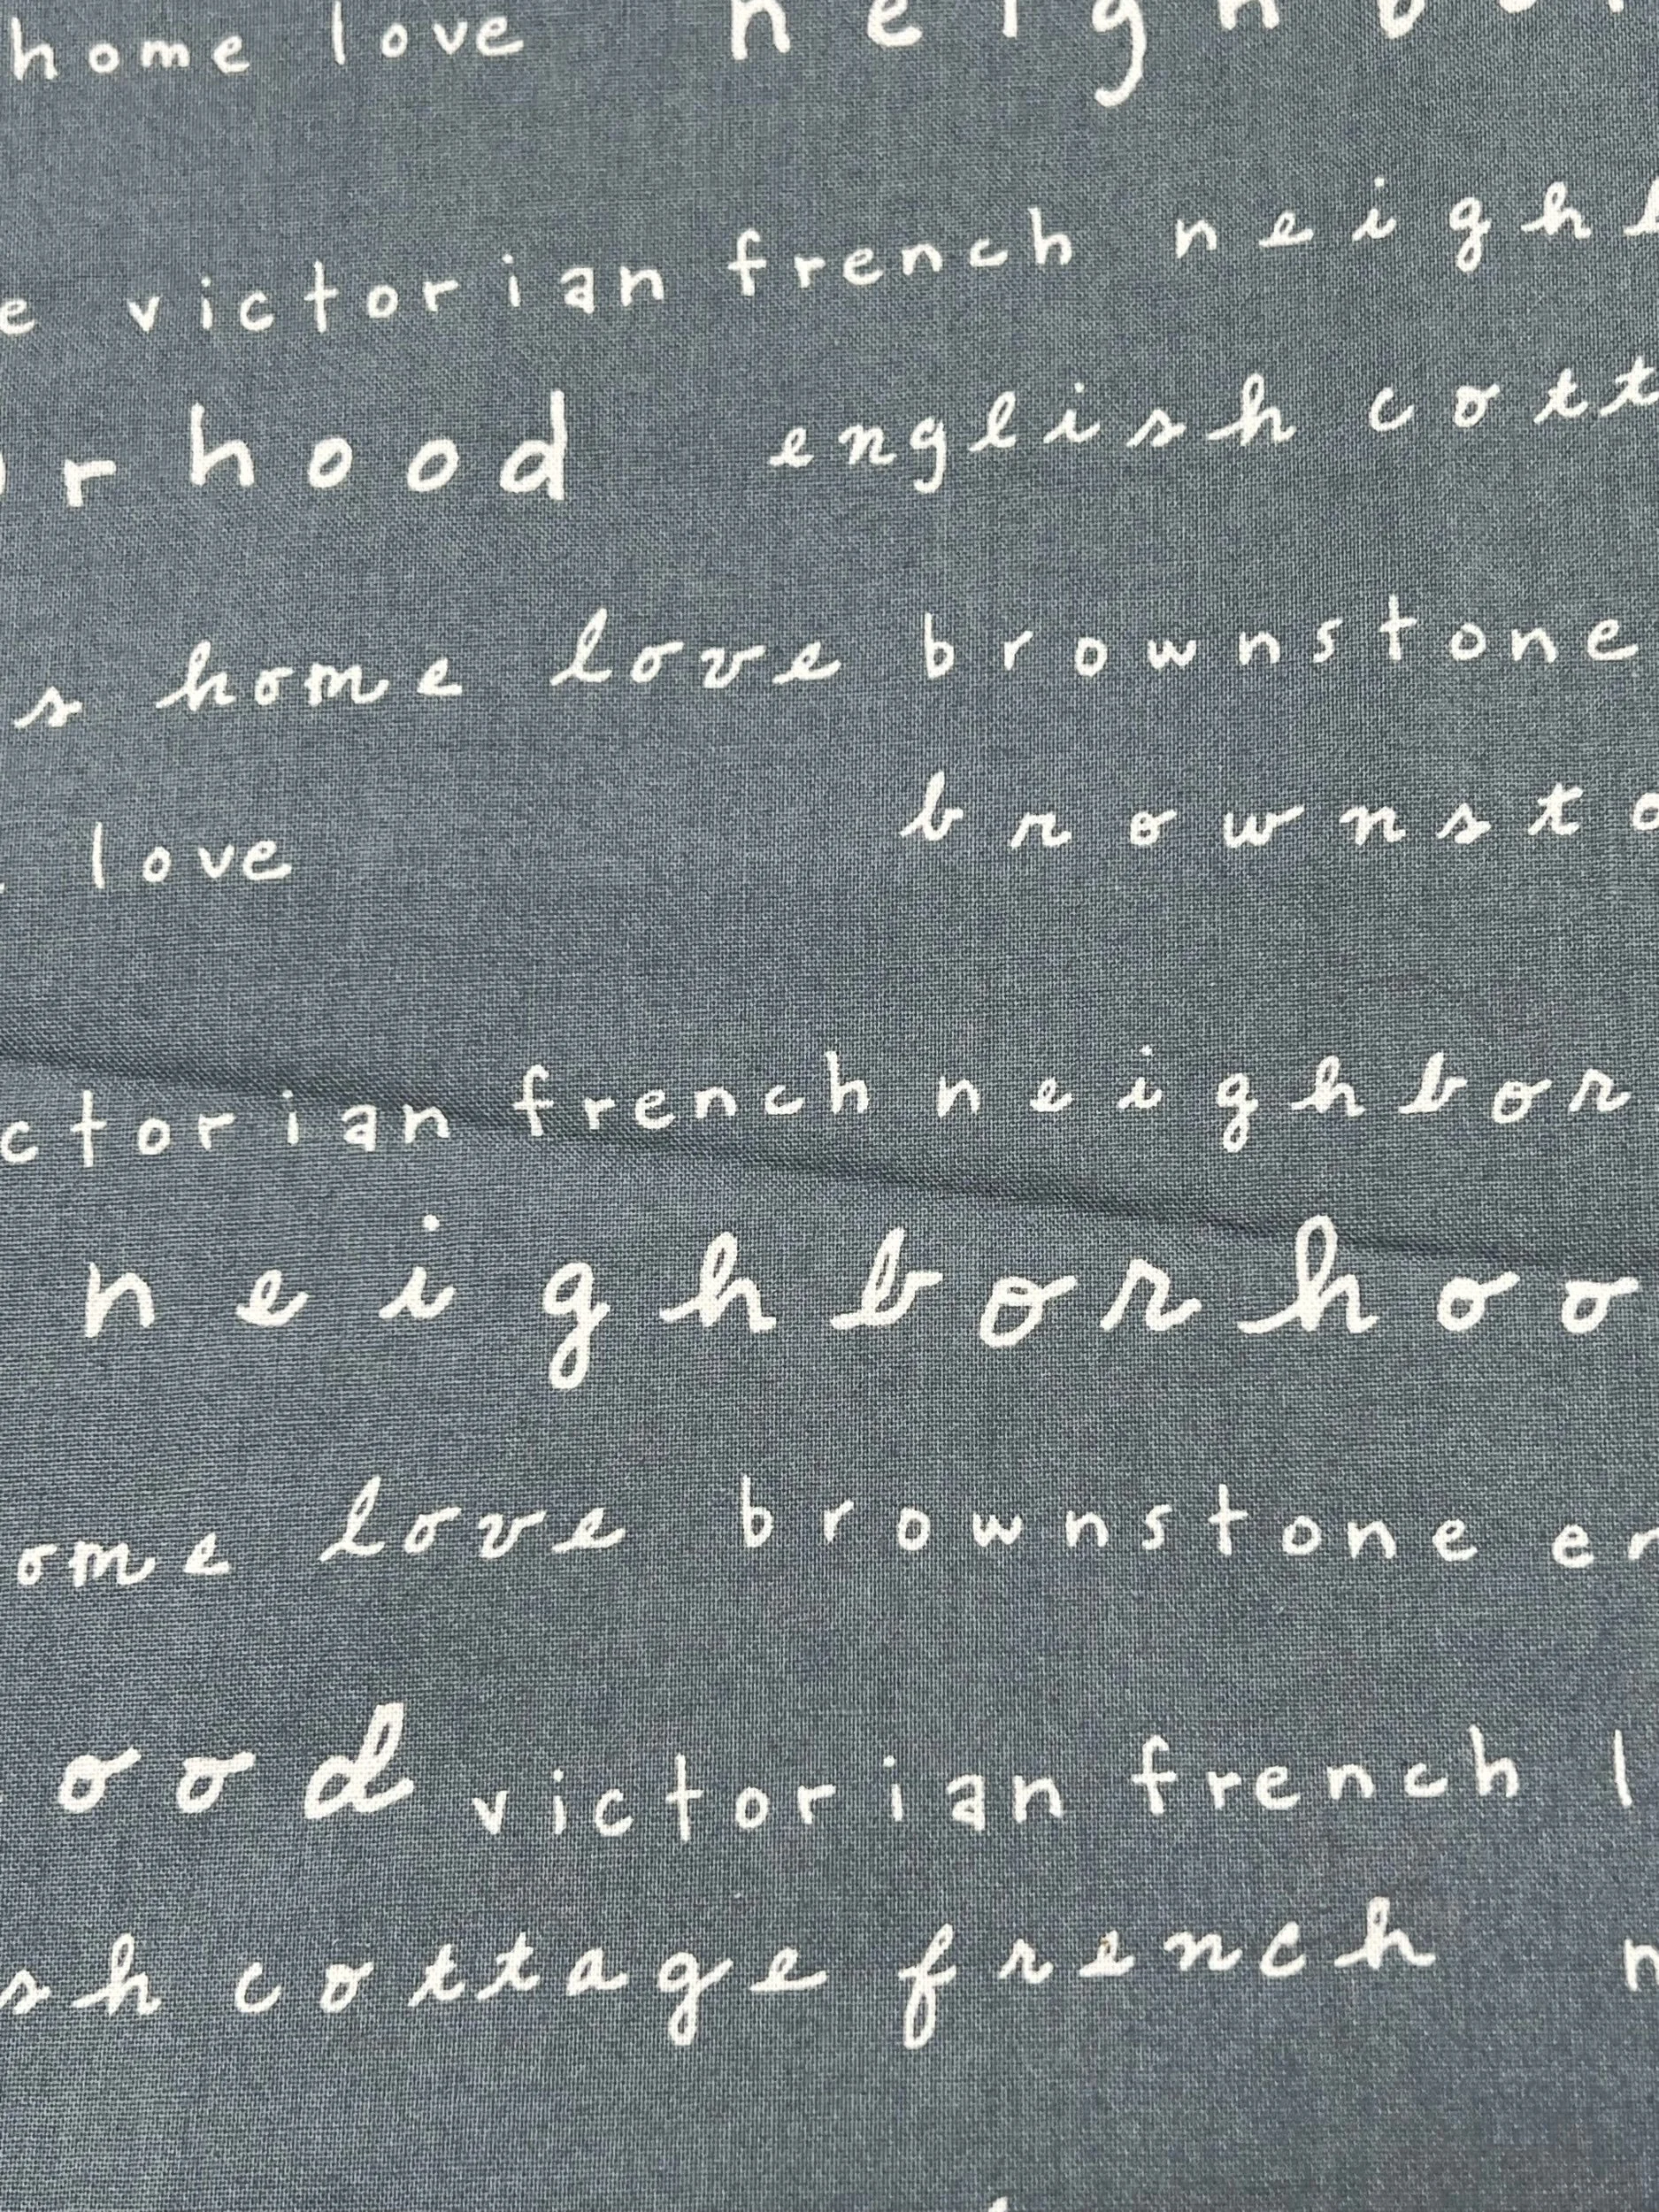 home love neighbor
e victorian french neighb
rhood english cott
s home love brownstone
love brownsto
ctorian french neighbor
neighborhoo
ome love brownstone en
ood victorian french l
sh cottage french n